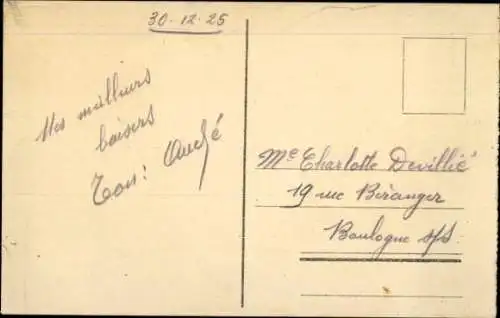 30-12-25
Mes meilleurs
baisers
Ton: André
Me Charlotte Devillié
19 rue Béranger
Boulogne s/s